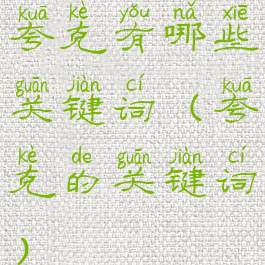 kuā kè yǒu nǎ xiē
夸克有哪些
guān jiàn cí kuā
关键词(夸
kè de guān jiàn cí
克的关键词
)